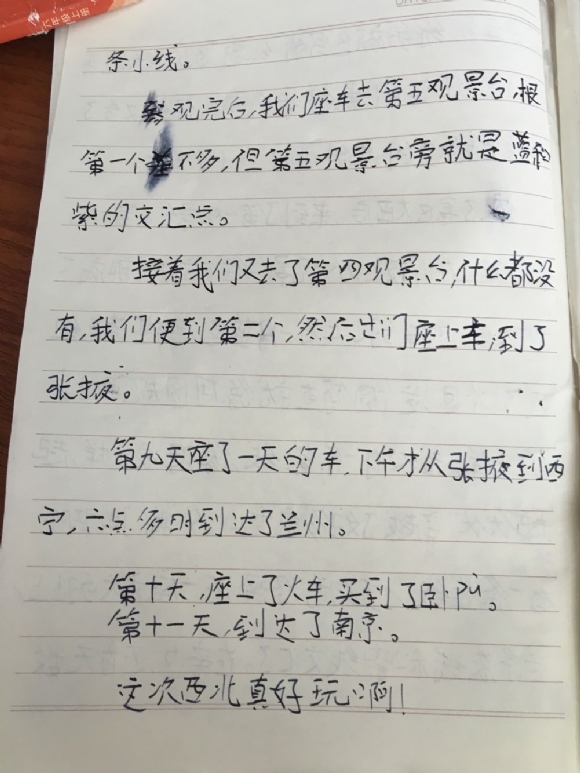 条小线。
观完后,我们座车去第五观景台,根
第一个差不多,但第五观景台旁就是蓝和
紫的交汇点。
接着我们又去了第四观景台,什么都没
有,我们便到第二个,然后出门座上车,到了
张掖。
第九天座了一天的车,下午才从张掖到西
宁,六点多时到达了兰州。
第十天,座上了火车,买到了卧pù。
第十一天,到达了南京。
这次西北真好玩啊!